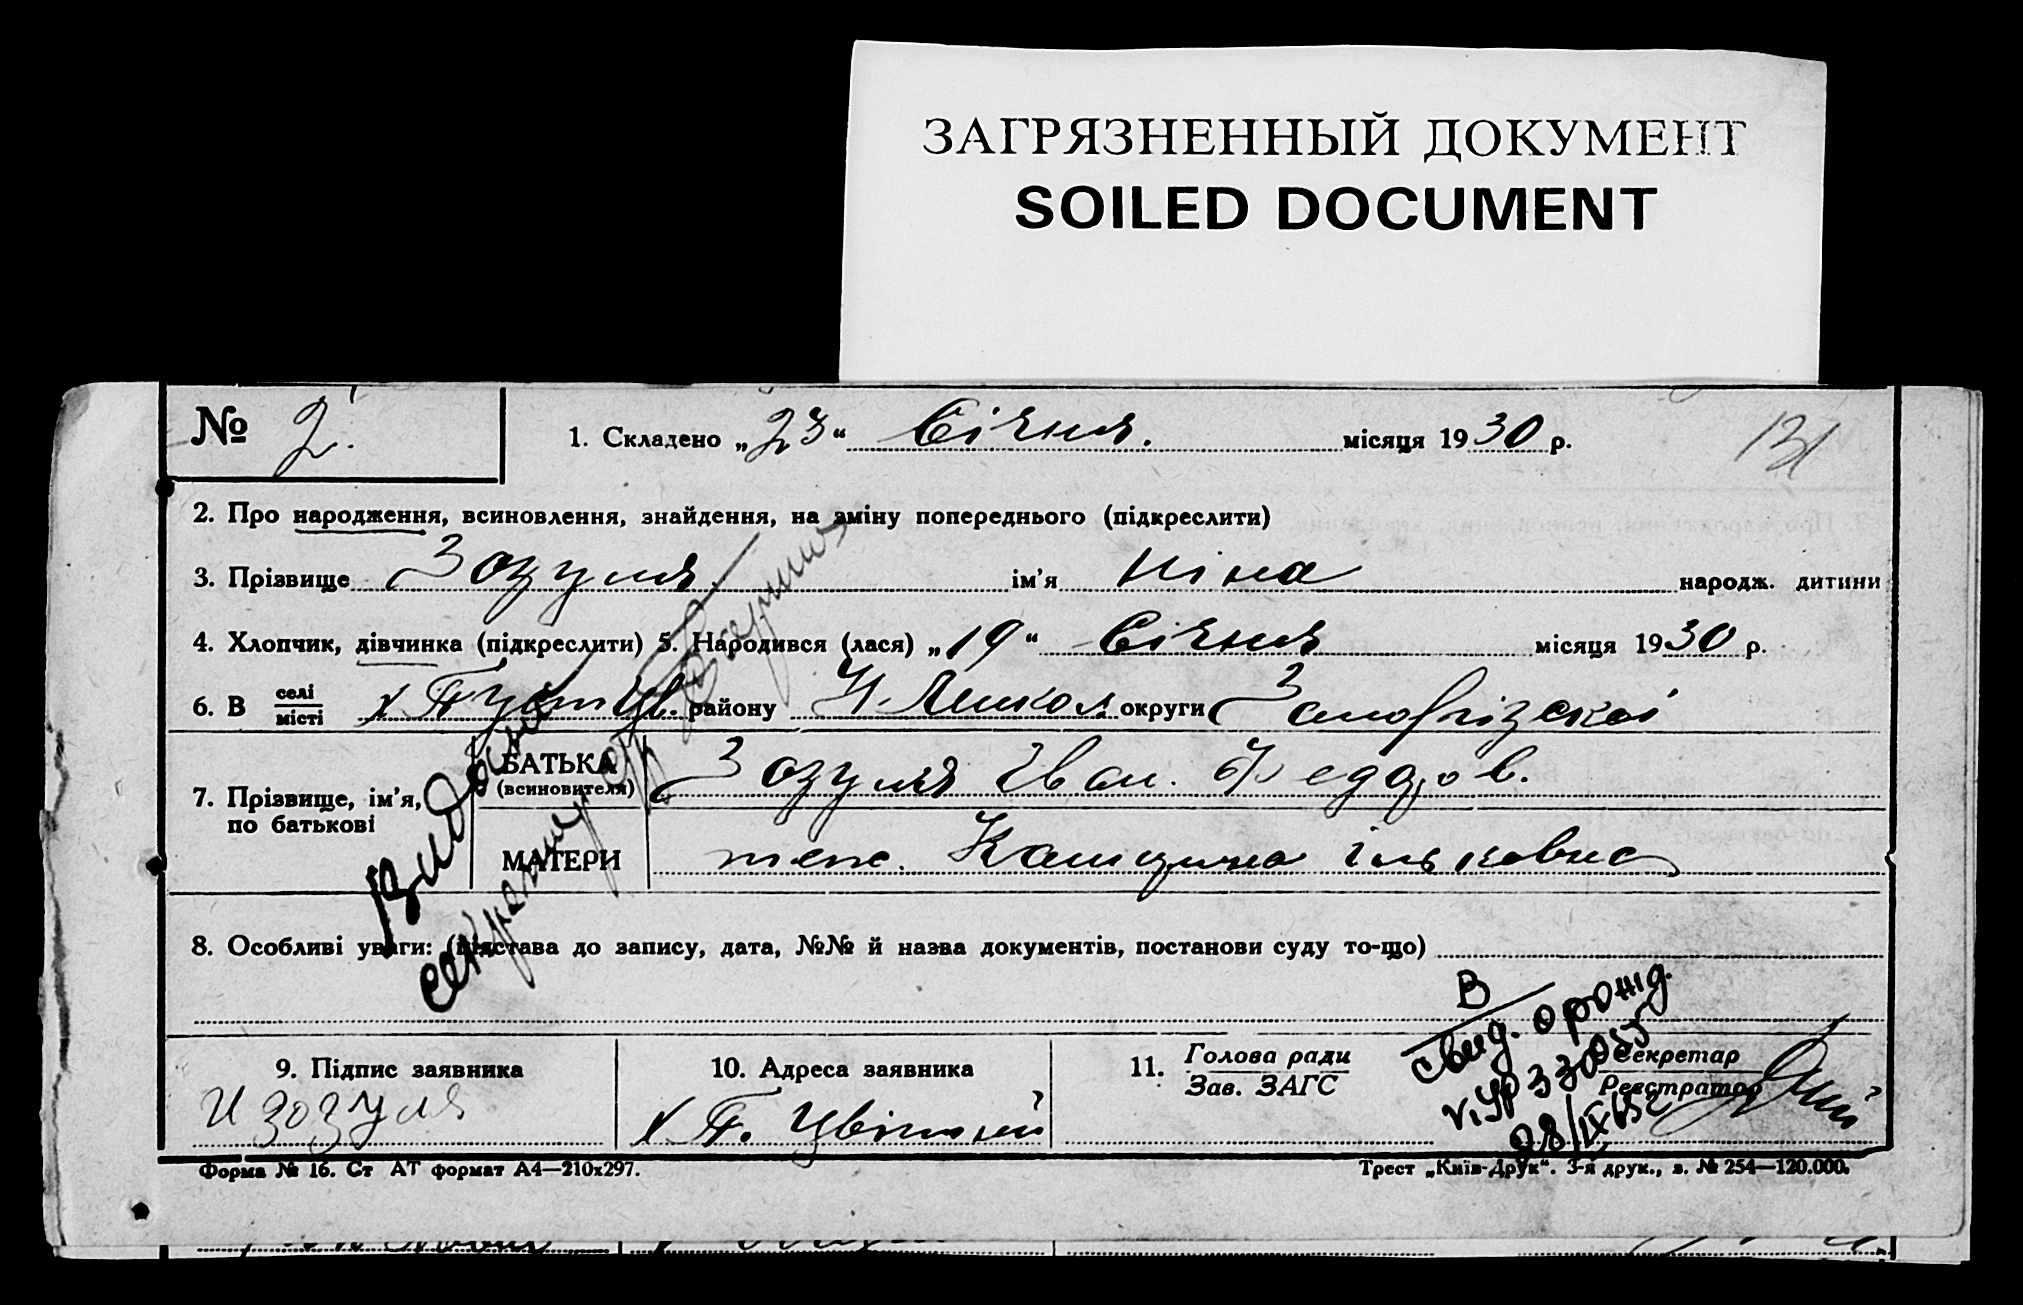 ЗАГРЯЗНЕННЫЙ ДОКУМЕНТ
SOILED DOCUMENT
№ 2. 1. Складено „23“ Січня. місяця 1930 р.
131
2. Про народження, всиновлення, знайдення, на зміну попереднього (підкреслити)
3. Прізвище Зозуля ім'я Ніна народж. дитини
4. Хлопчик, дівчинка (підкреслити) 5. Народився (лася) „19“ Січня місяця 1930 р.
6. В селі місті х району округи Запорізскої
7. Прізвище, ім'я, по батькові
БАТЬКА (всиновителя) Зозуля Іван. Федоров.
МАТЕРИ теж. Ільковна
8. Особливі уваги: (підстава до запису, дата, №№ й назва документів, постанови суду то-що)
Видано
В свид. о рожд.
V. УР 330055
28/IX 65 г
9. Підпис заявника
И Зозуля
10. Адреса заявника
х П. Цвітний
11. Голова ради
Зав. ЗАГС
Секретар
Реєстратор
Форма № 16. Ст АТ формат А4—210х297.
Трест „Київ-Друк“. 3-я друк., з. № 254—120.000.